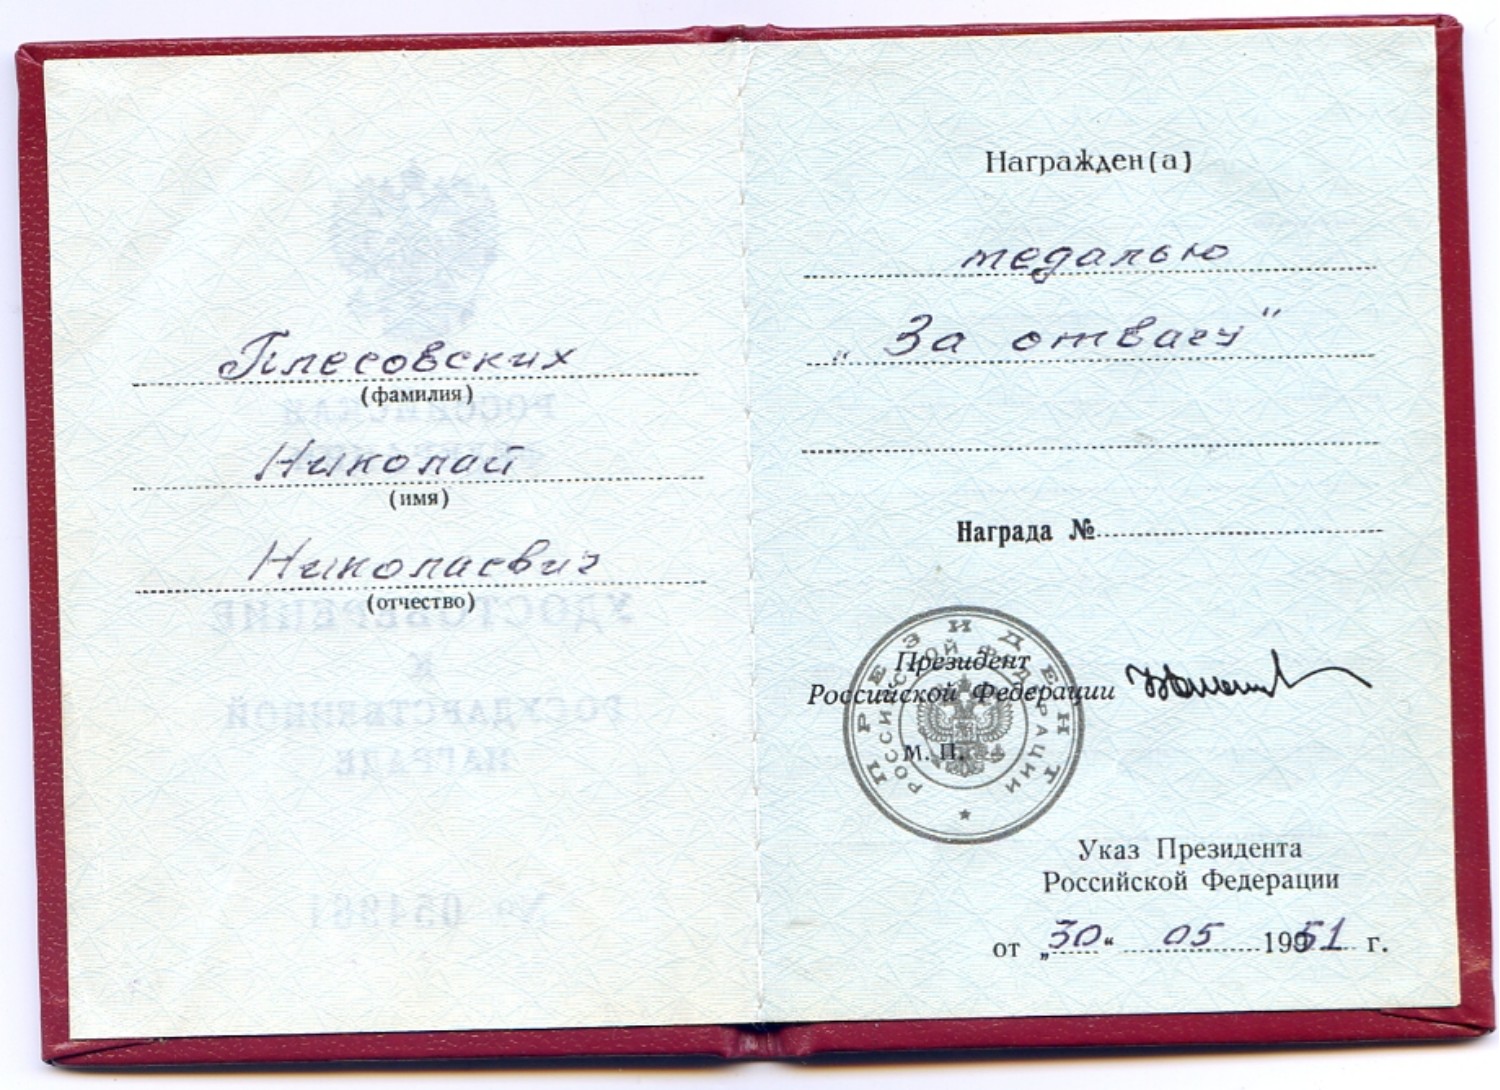 Плесовских
(фамилия)
Николай
(имя)
Николаевич
(отчество)
Награжден(а)
медалью
„За отвагу"
Награда №
Президент
Российской Федерации
М. П.
ПРЕЗИДЕНТ
РОССИЙСКОЙ ФЕДЕРАЦИИ
Указ Президента
Российской Федерации
от „30“ 05 1951 г.
РОССИЙСКАЯ
ФЕДЕРАЦИЯ
УДОСТОВЕРЕНИЕ
К
ГОСУДАРСТВЕННОЙ
НАГРАДЕ